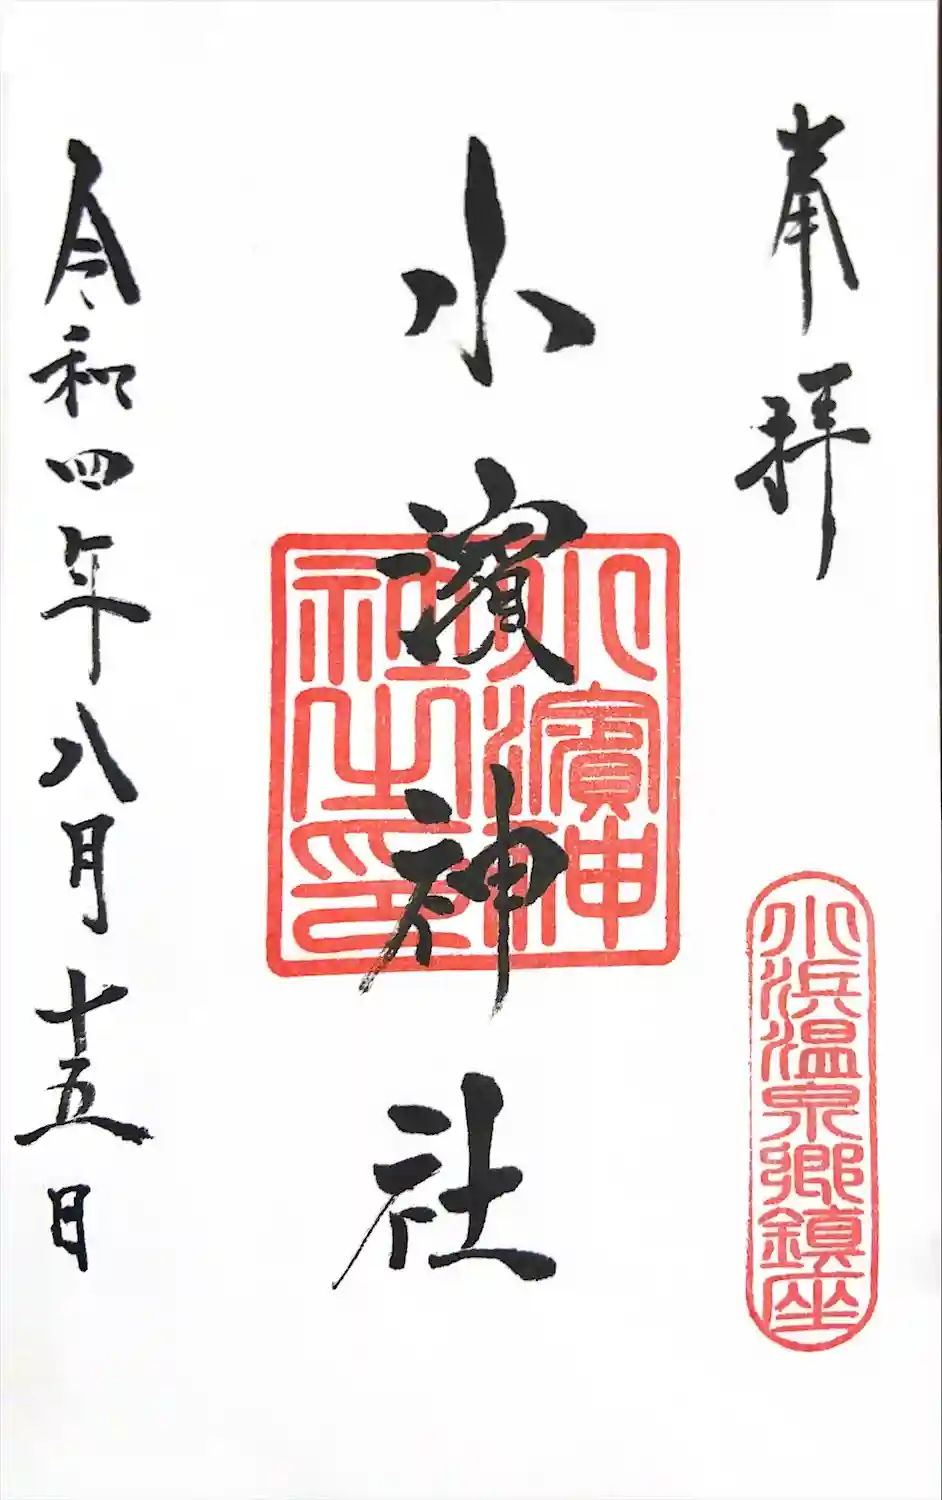 奉拝
小浜温泉郷鎮座
小濱神社
小濱神社之印
令和四年八月十五日